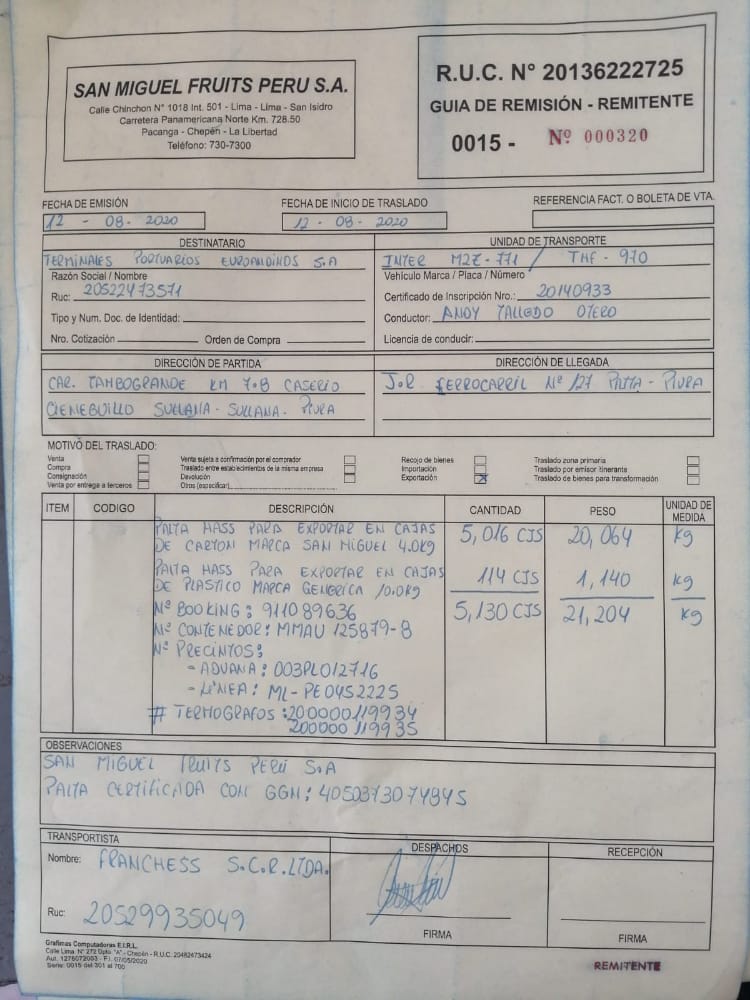 SAN MIGUEL FRUITS PERU S.A.
Calle Chinchon N° 1018 Int. 501 - Lima - Lima - San Isidro
Carretera Panamericana Norte Km. 728.50
Pacanga - Chepén - La Libertad
Teléfono: 730-7300
R.U.C. N° 20136222725
GUIA DE REMISIÓN - REMITENTE
0015 - Nº 000320
FECHA DE EMISIÓN
12 - 08 - 2020
FECHA DE INICIO DE TRASLADO
12 - 08 - 2020
REFERENCIA FACT. O BOLETA DE VTA.
DESTINATARIO
TERMINALES PORTUARIOS EUROANDINOS S.A
Razón Social / Nombre
Ruc: 20522473571
Tipo y Num. Doc. de Identidad:
Nro. Cotización Orden de Compra
UNIDAD DE TRANSPORTE
INTER M2Z-771 / THF-970
Vehículo Marca / Placa / Número
Certificado de Inscripción Nro.: 20140933
Conductor: ANDY TALLEDO OTERO
Licencia de conducir:
DIRECCIÓN DE PARTIDA
CAR. TAMBOGRANDE KM 7.8 CASERIO
CIENEGUILLO SULLANA - SULLANA - PIURA
DIRECCIÓN DE LLEGADA
J.R FERROCARRIL Nº 127 PAITA - PIURA
MOTIVO DEL TRASLADO:
Venta
Compra
Consignación
Venta por entrega a terceros
Venta sujeta a confirmación por el comprador
Traslado entre establecimientos de la misma empresa
Devolución
Otros (especificar)
Recojo de bienes
Importación
Exportación X
Traslado zona primaria
Traslado por emisor itinerante
Traslado de bienes para transformación
ITEM CODIGO DESCRIPCIÓN CANTIDAD PESO UNIDAD DE MEDIDA
PALTA HASS PARA EXPORTAR EN CAJAS
DE CARTON MARCA SAN MIGUEL 4.0kg 5,016 CJS 20,064 kg
PALTA HASS PARA EXPORTAR EN CAJAS
DE PLASTICO MARCA GENERICA 10.0kg 114 CJS 1,140 kg
Nº BOOKING: 911089636 5,130 CJS 21,204 kg
Nº CONTENEDOR: MMAU 125879-8
Nº PRECINTOS:
- ADUANA: 003PL012716
- LÍNEA: ML-PE0452225
# TERMOGRAFOS: 200000119934
200000119935
OBSERVACIONES
SAN MIGUEL FRUITS PERÚ S.A
PALTA CERTIFICADA CON GGN: 4050373074845
TRANSPORTISTA
Nombre: FRANCHESS S.C.R.LTDA.
Ruc: 20529935049
DESPACHOS
FIRMA
RECEPCIÓN
FIRMA
Grafimas Computadoras E.I.R.L.
Calle Lima N° 272 Dpto. "A" - Chepén - R.U.C. 20482473424
Aut. 1276072003 - F.I. 07/05/2020
Serie: 0015 del 301 al 700
REMITENTE